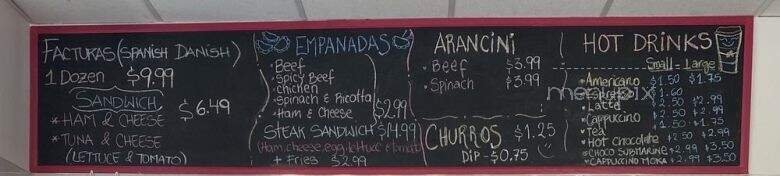 FACTURAS (SPANISH DANISH)
1 Dozen $9.99
SANDWICH $6.49
* HAM & CHEESE
* TUNA & CHEESE
(LETTUCE & TOMATO)
EMPANADAS
• Beef
• Spicy Beef
• chicken
• Spinach & Ricotta
• Ham & Cheese
$2.99
STEAK SANDWICH $14.99
(Ham, cheese, egg, lettuce & tomato)
+ Fries $2.99
ARANCINI
• Beef $3.99
• Spinach $3.99
CHURROS $1.25
DIP - $0.75
HOT DRINKS
Small - Large
* Americano $1.50 $1.75
* Espresso $1.60
* Latte $2.50 $2.99
* Cappuccino $2.50 $2.99
* Tea $1.50 $1.75
* Hot chocolate $2.50 $2.99
* CHOCO SUBMARINE $2.99 $3.50
* CAPPUCCINO MOKA $2.99 $3.50